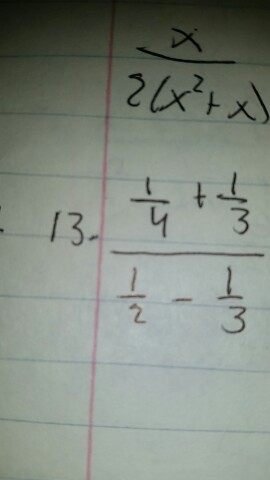 x
2(x²+x)
13. 1/4 + 1/3
1/2 - 1/3